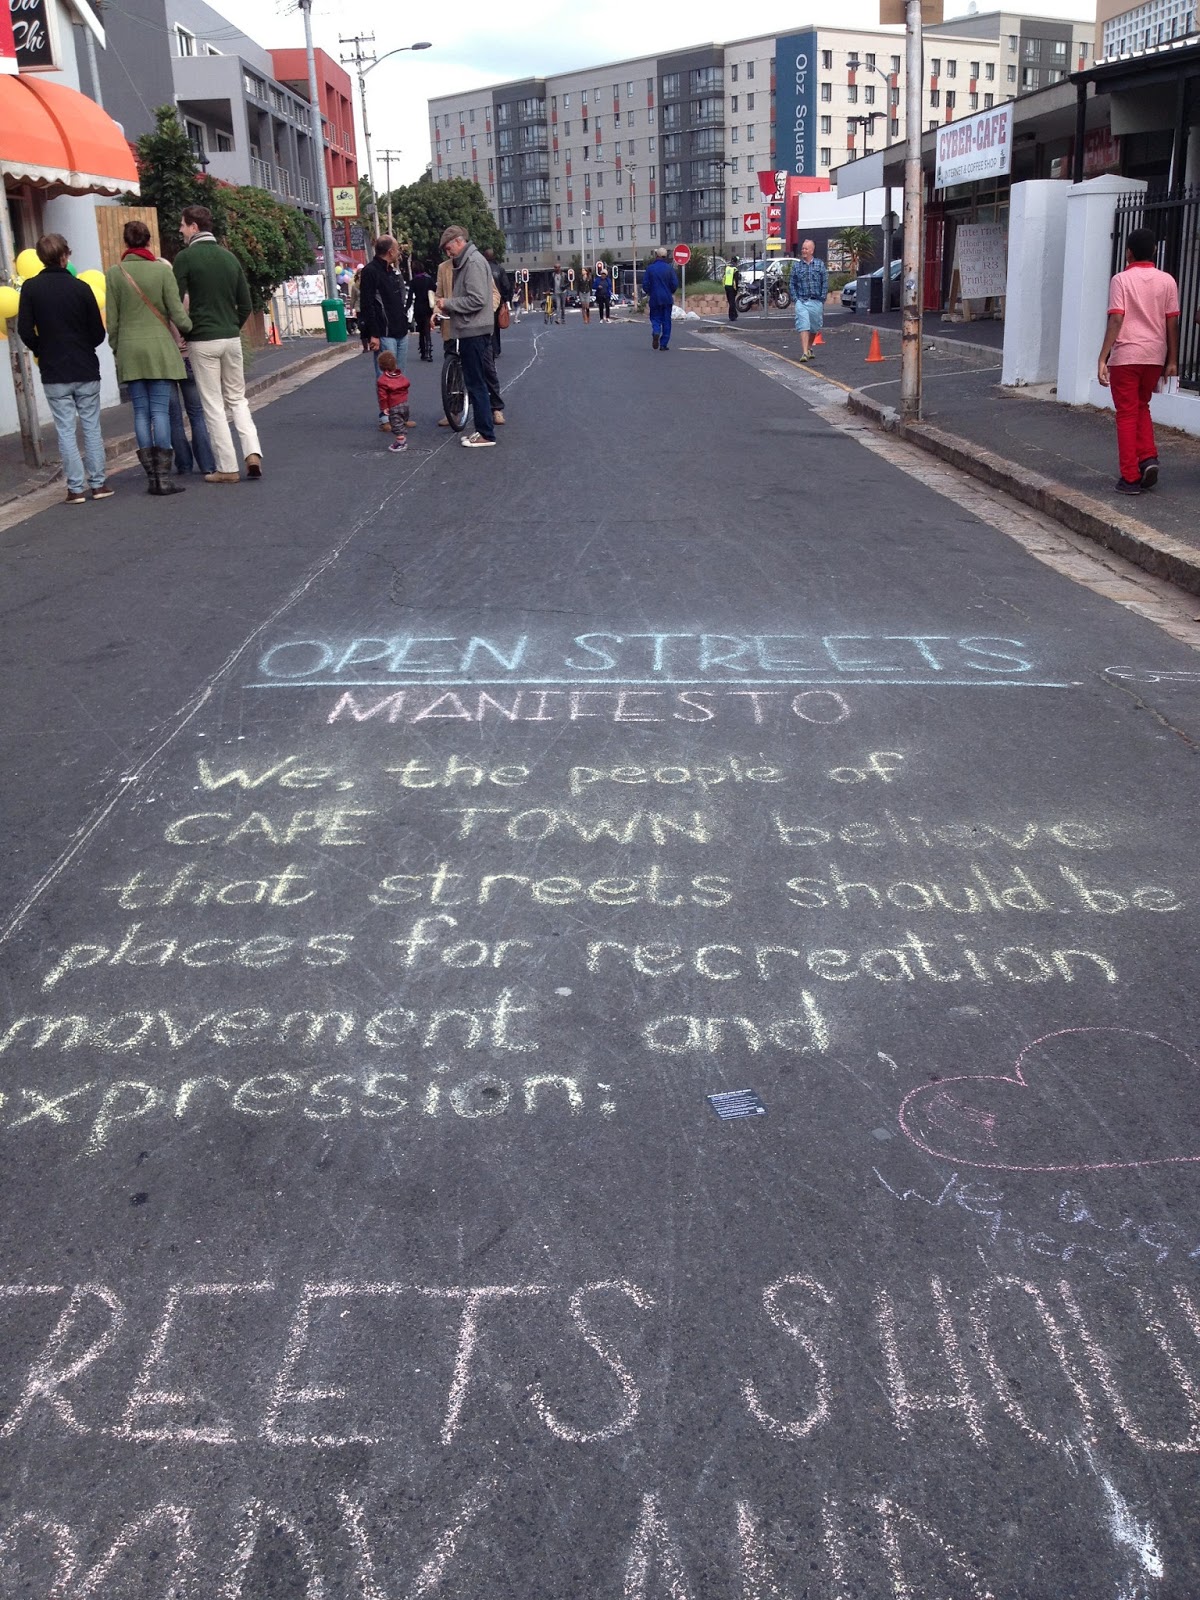 Chi
Obz Square
CYBER-CAFE
INTERNET & COFFEE SHOP
Internet
OPEN STREETS
MANIFESTO
We, the people of
CAPE TOWN believe
that streets should be
places for recreation
movement and
expression:
We are
REETS SHOU